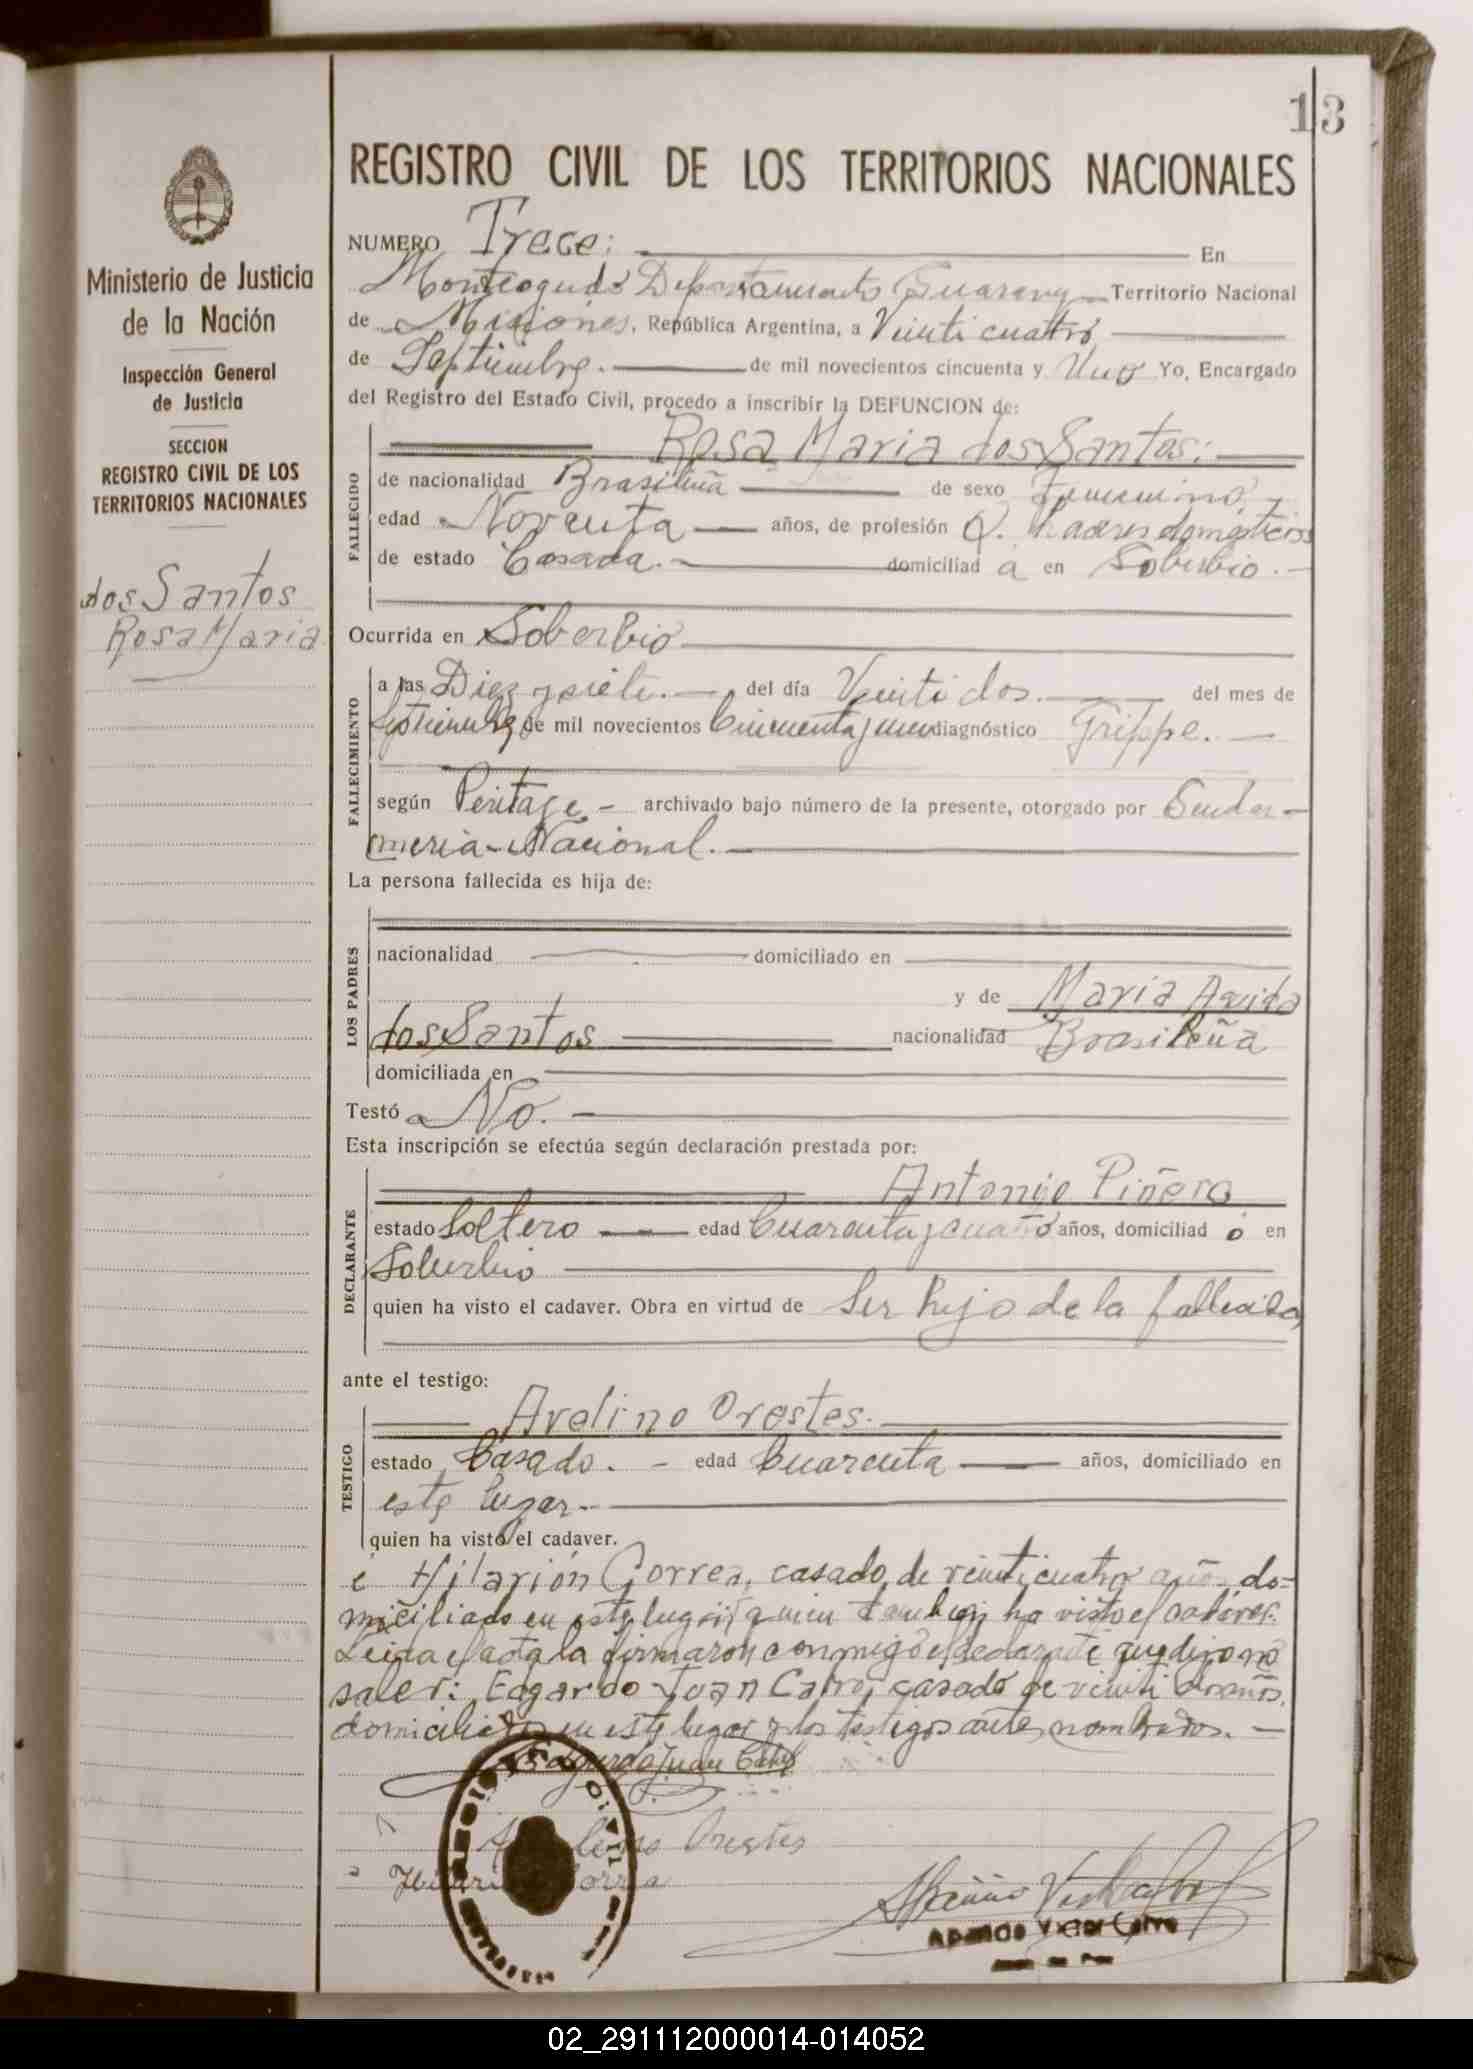 13
Ministerio de Justicia
de la Nación
Inspección General
de Justicia
SECCION
REGISTRO CIVIL DE LOS
TERRITORIOS NACIONALES
dos Santos
Rosa Maria
REGISTRO CIVIL DE LOS TERRITORIOS NACIONALES
NUMERO Trece: En
Monteagudo Departamento Guarany Territorio Nacional
de Misiones, República Argentina, a Veinti cuatro
de Septiembre. de mil novecientos cincuenta y Uno Yo, Encargado
del Registro del Estado Civil, procedo a inscribir la DEFUNCION de:
Rosa Maria dos Santos:
FALLECIDO
de nacionalidad Brasileña de sexo Femenino,
edad Noventa años, de profesión Q. haceres domésticos
de estado Casada. domiciliad a en Soberbio.
Ocurrida en Soberbio
FALLECIMIENTO
a las Diez y siete. del día Veinti dos. del mes de
Septiembre de mil novecientos Cincuenta y uno diagnóstico Grippe.
según Peritaje archivado bajo número de la presente, otorgado por Gendar-
meria Nacional.
La persona fallecida es hija de:
LOS PADRES
nacionalidad domiciliado en
y de Maria
dos Santos nacionalidad Brasileña
domiciliada en
Testó No.
Esta inscripción se efectúa según declaración prestada por:
Antonijo Piñero
DECLARANTE
estado Soltero edad Cuarenta y cuatro años, domiciliad o en
Soberbio
quien ha visto el cadaver. Obra en virtud de Ser hijo de la fallecida,
ante el testigo:
Avelino Orestes.
TESTIGO
estado Casado. edad Cuarenta años, domiciliado en
este lugar.
quien ha visto el cadaver.
é Hilarión Correa, casado, de veinticuatro años do-
miciliado en este lugar quien tambien ha visto el cadáver.
Leida el acta la firmaron conmigo el declarante que dijo no
saber: Edgardo Juan Calvo, casado de veinti dos años,
domiciliado en este lugar y los testigos antes nombrados.
Edgardo Juan Calvo
Avelino Orestes
Hilario Correa
REGISTRO CIVIL
Aparicio Victor Calvo
Juez de Paz
02_291112000014-014052